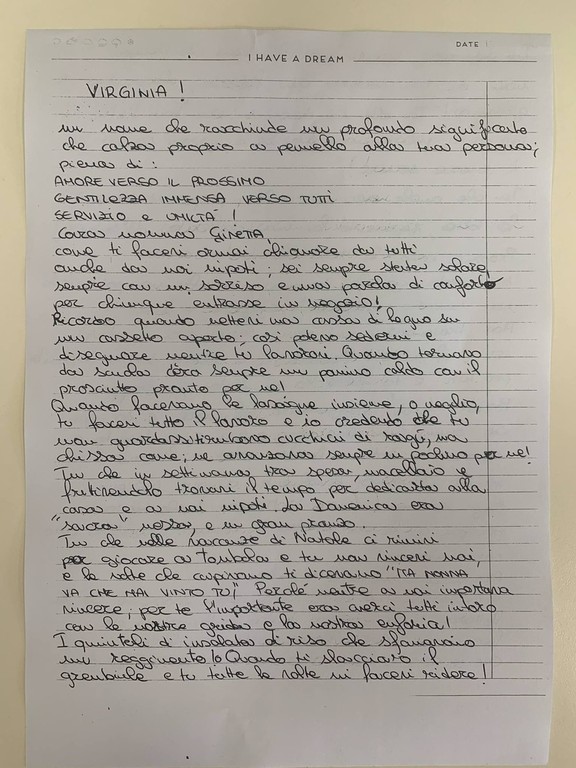 DATE
I HAVE A DREAM
VIRGINIA !
un nome che racchiude un profondo significato
che calza proprio a pennello alla tua persona;
piena di :
AMORE VERSO IL PROSSIMO
GENTILEZZA IMMENSA VERSO TUTTI
SERVIZIO e UMILTÀ !
Cara nonna GINETTA,
come ti facevi ormai chiamare da tutti
anche da noi nipoti; sei sempre stata solare,
sempre con un sorriso e una parola di conforto
per chiunque entrasse in negozio!
Ricordo quando mettevi una cassa di legno su
un cassetto aperto; così potevo sedermi e
disegnare mentre tu lavoravi. Quando tornavo
da scuola c'era sempre un panino caldo con il
prosciutto pronto per me!
Quando facevamo le lasagne insieme, o meglio,
tu facevi tutto il lavoro e io credendo che tu
non guardassi rubavo cucchiai di ragù, ma
chissà come; ne avanzava sempre un pochino per me!
Tu che in settimana tra spesa, macellaio e
fruttivendolo trovavi il tempo per dedicarti alla
casa e a noi nipoti. La Domenica era
"sacra" messa, e un gran pranzo.
Tu che nelle vacanze di Natale ci riunivi
per giocare a Tombola e tu non vincevi mai,
e le volte che capitavano ti dicevamo "MA NONNA
VA CHE HAI VINTO TU", Perché mentre a noi importava
vincere; per te l'importante era averci tutti intorno
con le nostre grida e la nostra euforia!
I quintali di insalata di riso che sfamavano
un reggimento! Quando ti slacciavo il
grembiule e tu tutte le volte mi facevi ridere!